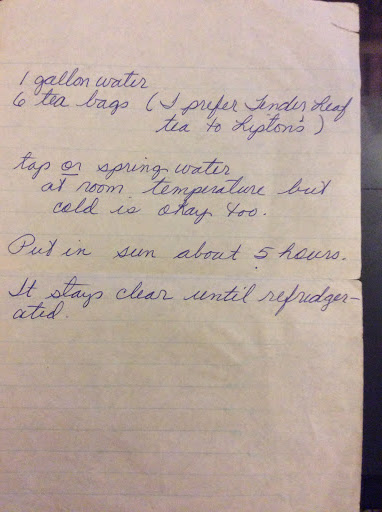 1 gallon water
6 tea bags (I prefer Tender Leaf
tea to Lipton's)
tap or spring water
at room temperature but
cold is okay too.
Put in sun about 5 hours.
It stays clear until refridger-
ated.